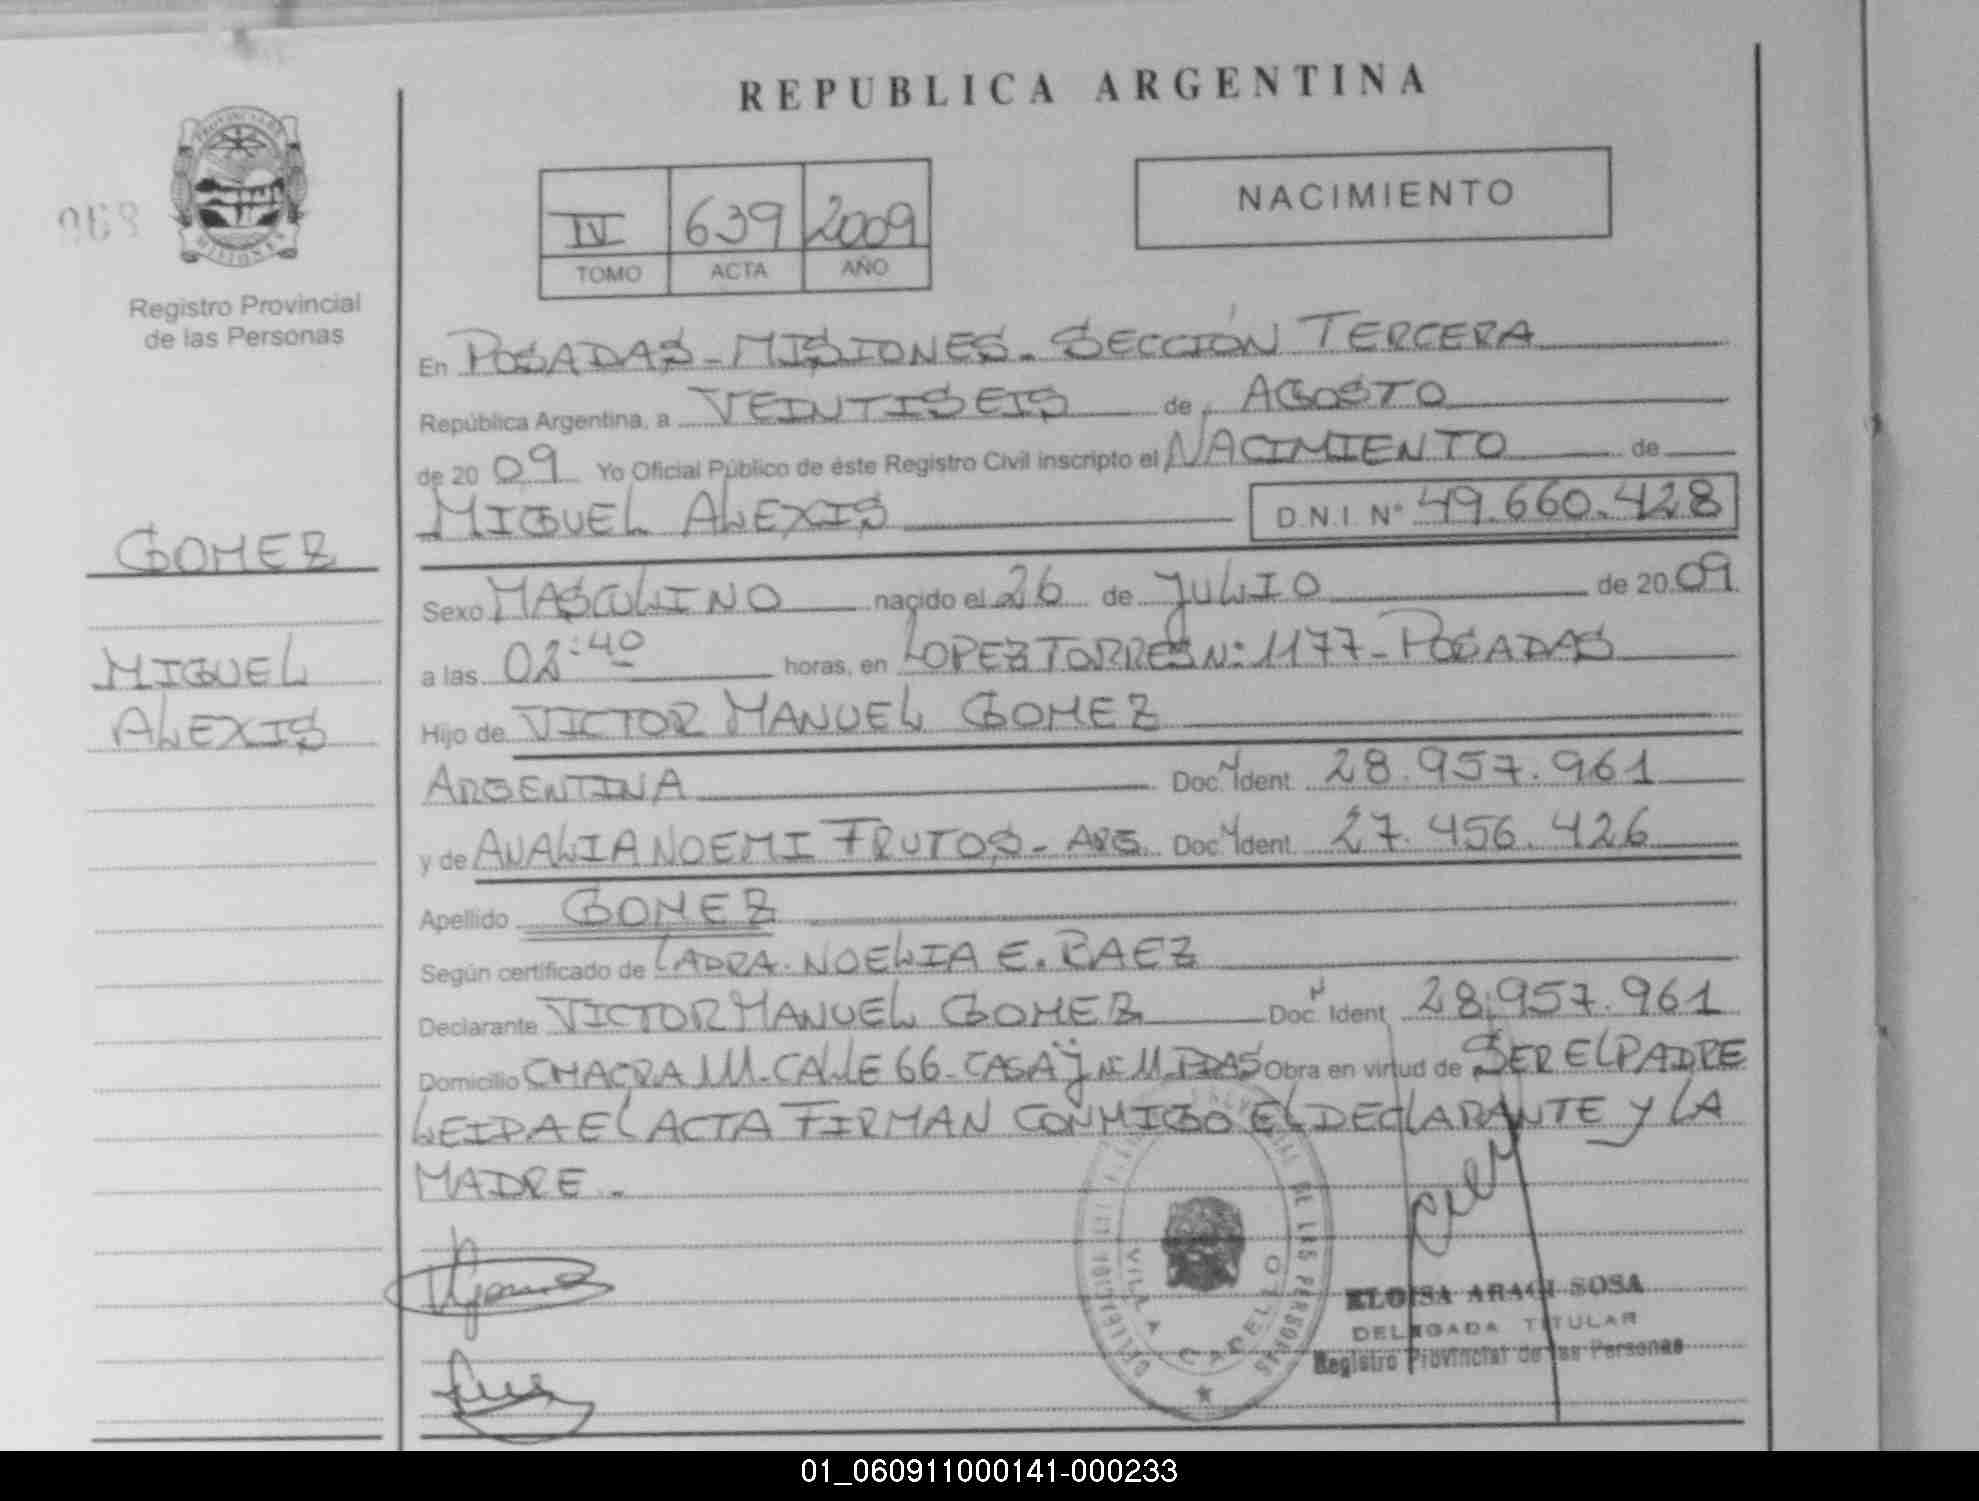 REPUBLICA ARGENTINA
PROVINCIA DE
MISIONES
068
Registro Provincial
de las Personas
IV 639 2009
TOMO ACTA AÑO
NACIMIENTO
En POSADAS - MISIONES - SECCIÓN TERCERA
República Argentina, a VEINTISEIS de AGOSTO
de 20 09 Yo Oficial Público de éste Registro Civil inscripto el NACIMIENTO de
MIGUEL ALEXIS D.N.I. N° 49.660.428
GOMEZ
MIGUEL
ALEXIS
Sexo MASCULINO nacido el 26 de JULIO de 20 09.
a las 02:40 horas, en LOPEZ TORRES Nº 1177 - POSADAS
Hijo de VICTOR MANUEL GOMEZ
ARGENTINA Doc. N Ident. 28.957.961
y de ANALIA NOEMI FRUTOS - ARG. Doc. N Ident. 27.456.426
Apellido GOMEZ
Según certificado de LA DRA. NOELIA E. BAEZ
Declarante VICTOR MANUEL GOMEZ Doc. N Ident 28.957.961
Domicilio CHACRA 111 - CALLE 66 - CASA Nº 11 PDAS Obra en virtud de SER EL PADRE
LEIDA EL ACTA FIRMAN CONMIGO EL DECLARANTE Y LA
MADRE.-
DE LAS PERSONAS
VILLA CABELLO
ELOISA ARACI SOSA
DELEGADA TITULAR
Registro Provincial de las Personas
01_060911000141-000233